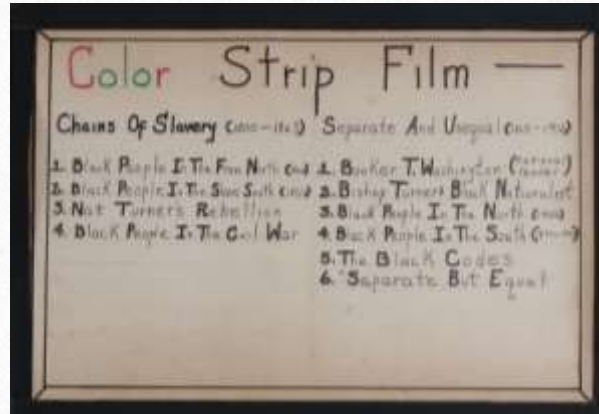 Color Strip Film —
Chains Of Slavery
1. Black People In The Free North
2. Black People In The Slave South
3. Nat Turner's Rebellion
4. Black People In The Civil War
Separate And Unequal
1. Booker T. Washington
2. Bishop Turner: Black Nationalist
3. Black People In The North
4. Black People In The South
5. The Black Codes
6. "Separate But Equal